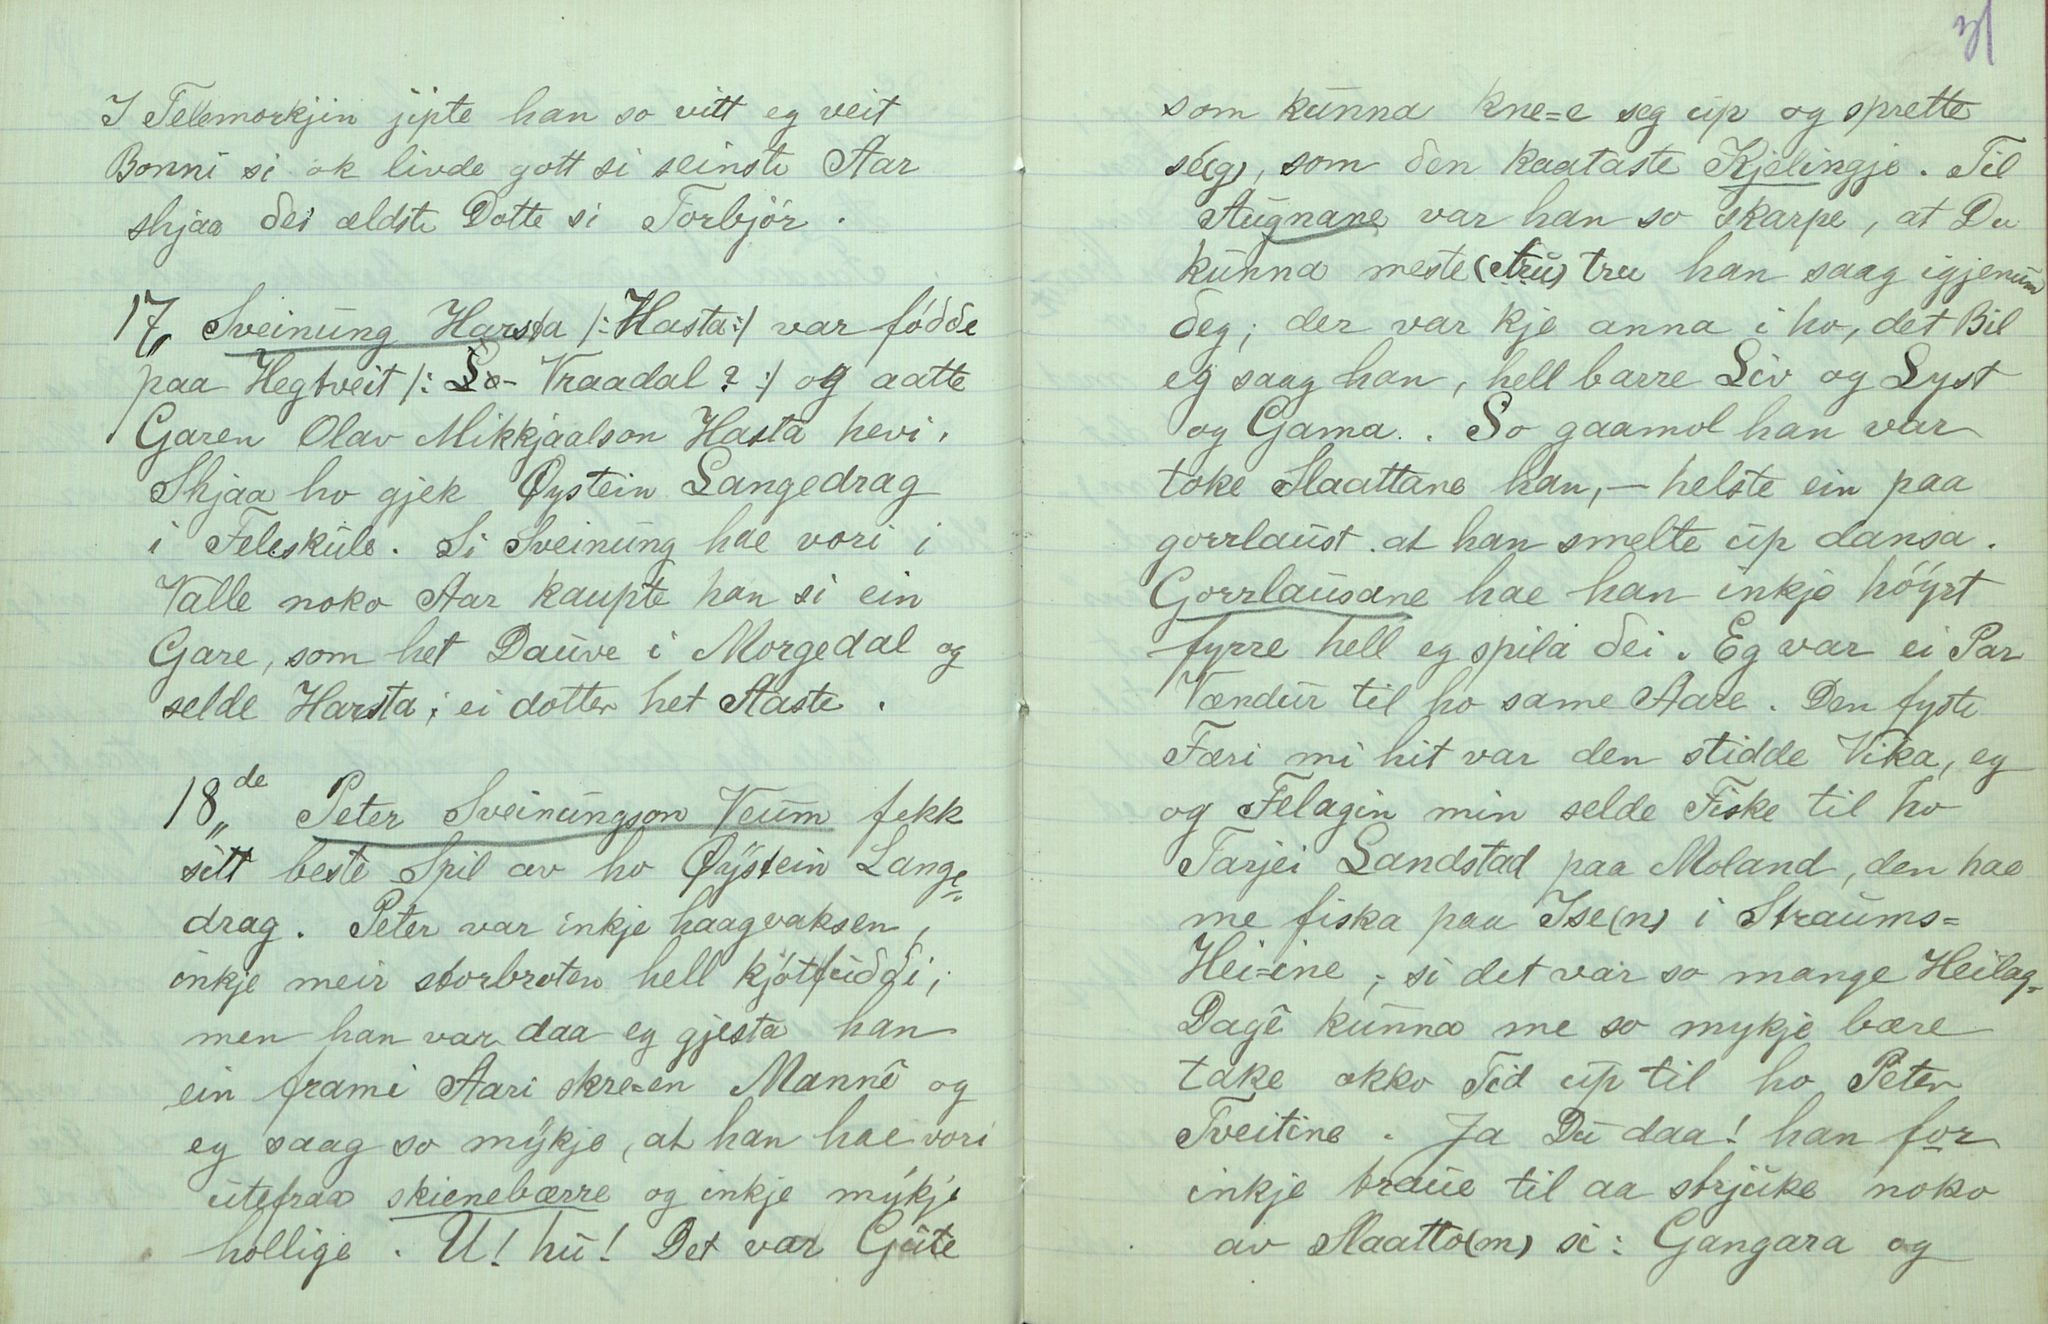 I Telemorkjin jipte han so vitt eg veit
Bonni si ok livde gott si seinste Aar
shjaa dei ældste Dotte si Torbjör.
17,, Sveinung Harsta /: Hasta :/ var födde
paa Hegtveit /: Lo- Vraadal ? :/ og aatte
Garen Olav Mikkjaalson Hasta hevi.
Shjaa ho gjek Øystein Langedrag
i Feleskule. Si Sveinung hae vori i
Valle noko Aar kaupte han si ein
Gare, som het Dauve i Morgedal og
selde Harsta; ei dotter het Aaste.
18,,de Peter Sveinungson Veum fekk
sitt beste Spil av ho Øystein Lange=
drag. Peter var inkje haagvaksen,
inkje meir storbroten hell kjötfuddi;
men han var daa eg gjesta han
ein frami Aari skre=en Mannê og
eg saag so mykje, at han hae vori
utefraa skienebærre og inkje mykje
hollige. U! hu! Det var Gute
31
som kunna kne=e seg up og sprette
se(g), som den kaataste Kjelingje. Til
Augnane var han so skarpe, at Du
kunna meste (tru) tru han saag igjenum
deg; der var kje anna i ho, det Bil
eg saag han, hell barre Liv og Lyst
og Gama. So gaamol han var
toke Slaattane han, — helste ein paa
gorrlaust. at han smelte up dansa.
Gorrlausane hae han inkje höyrt
fyrre hell eg spila dei. Eg var ei Par
Vændur til ho same Aare. Den fyste
Færi mi hit var den stidde Vika, eg
og Felagin min selde Fiske til ho
Tarjei Landstad paa Moland, den hae
me fiska paa Ise(n) i Straums=
Hei=ine; si det var so mange Heilag=
Dagê kunna me so mykje bære
take okko Tid up til ho Peter
Tveitine. Ja Du daa! han for
inkje traue til aa strjuke noko
av Slaatto(m) si: Gangara og